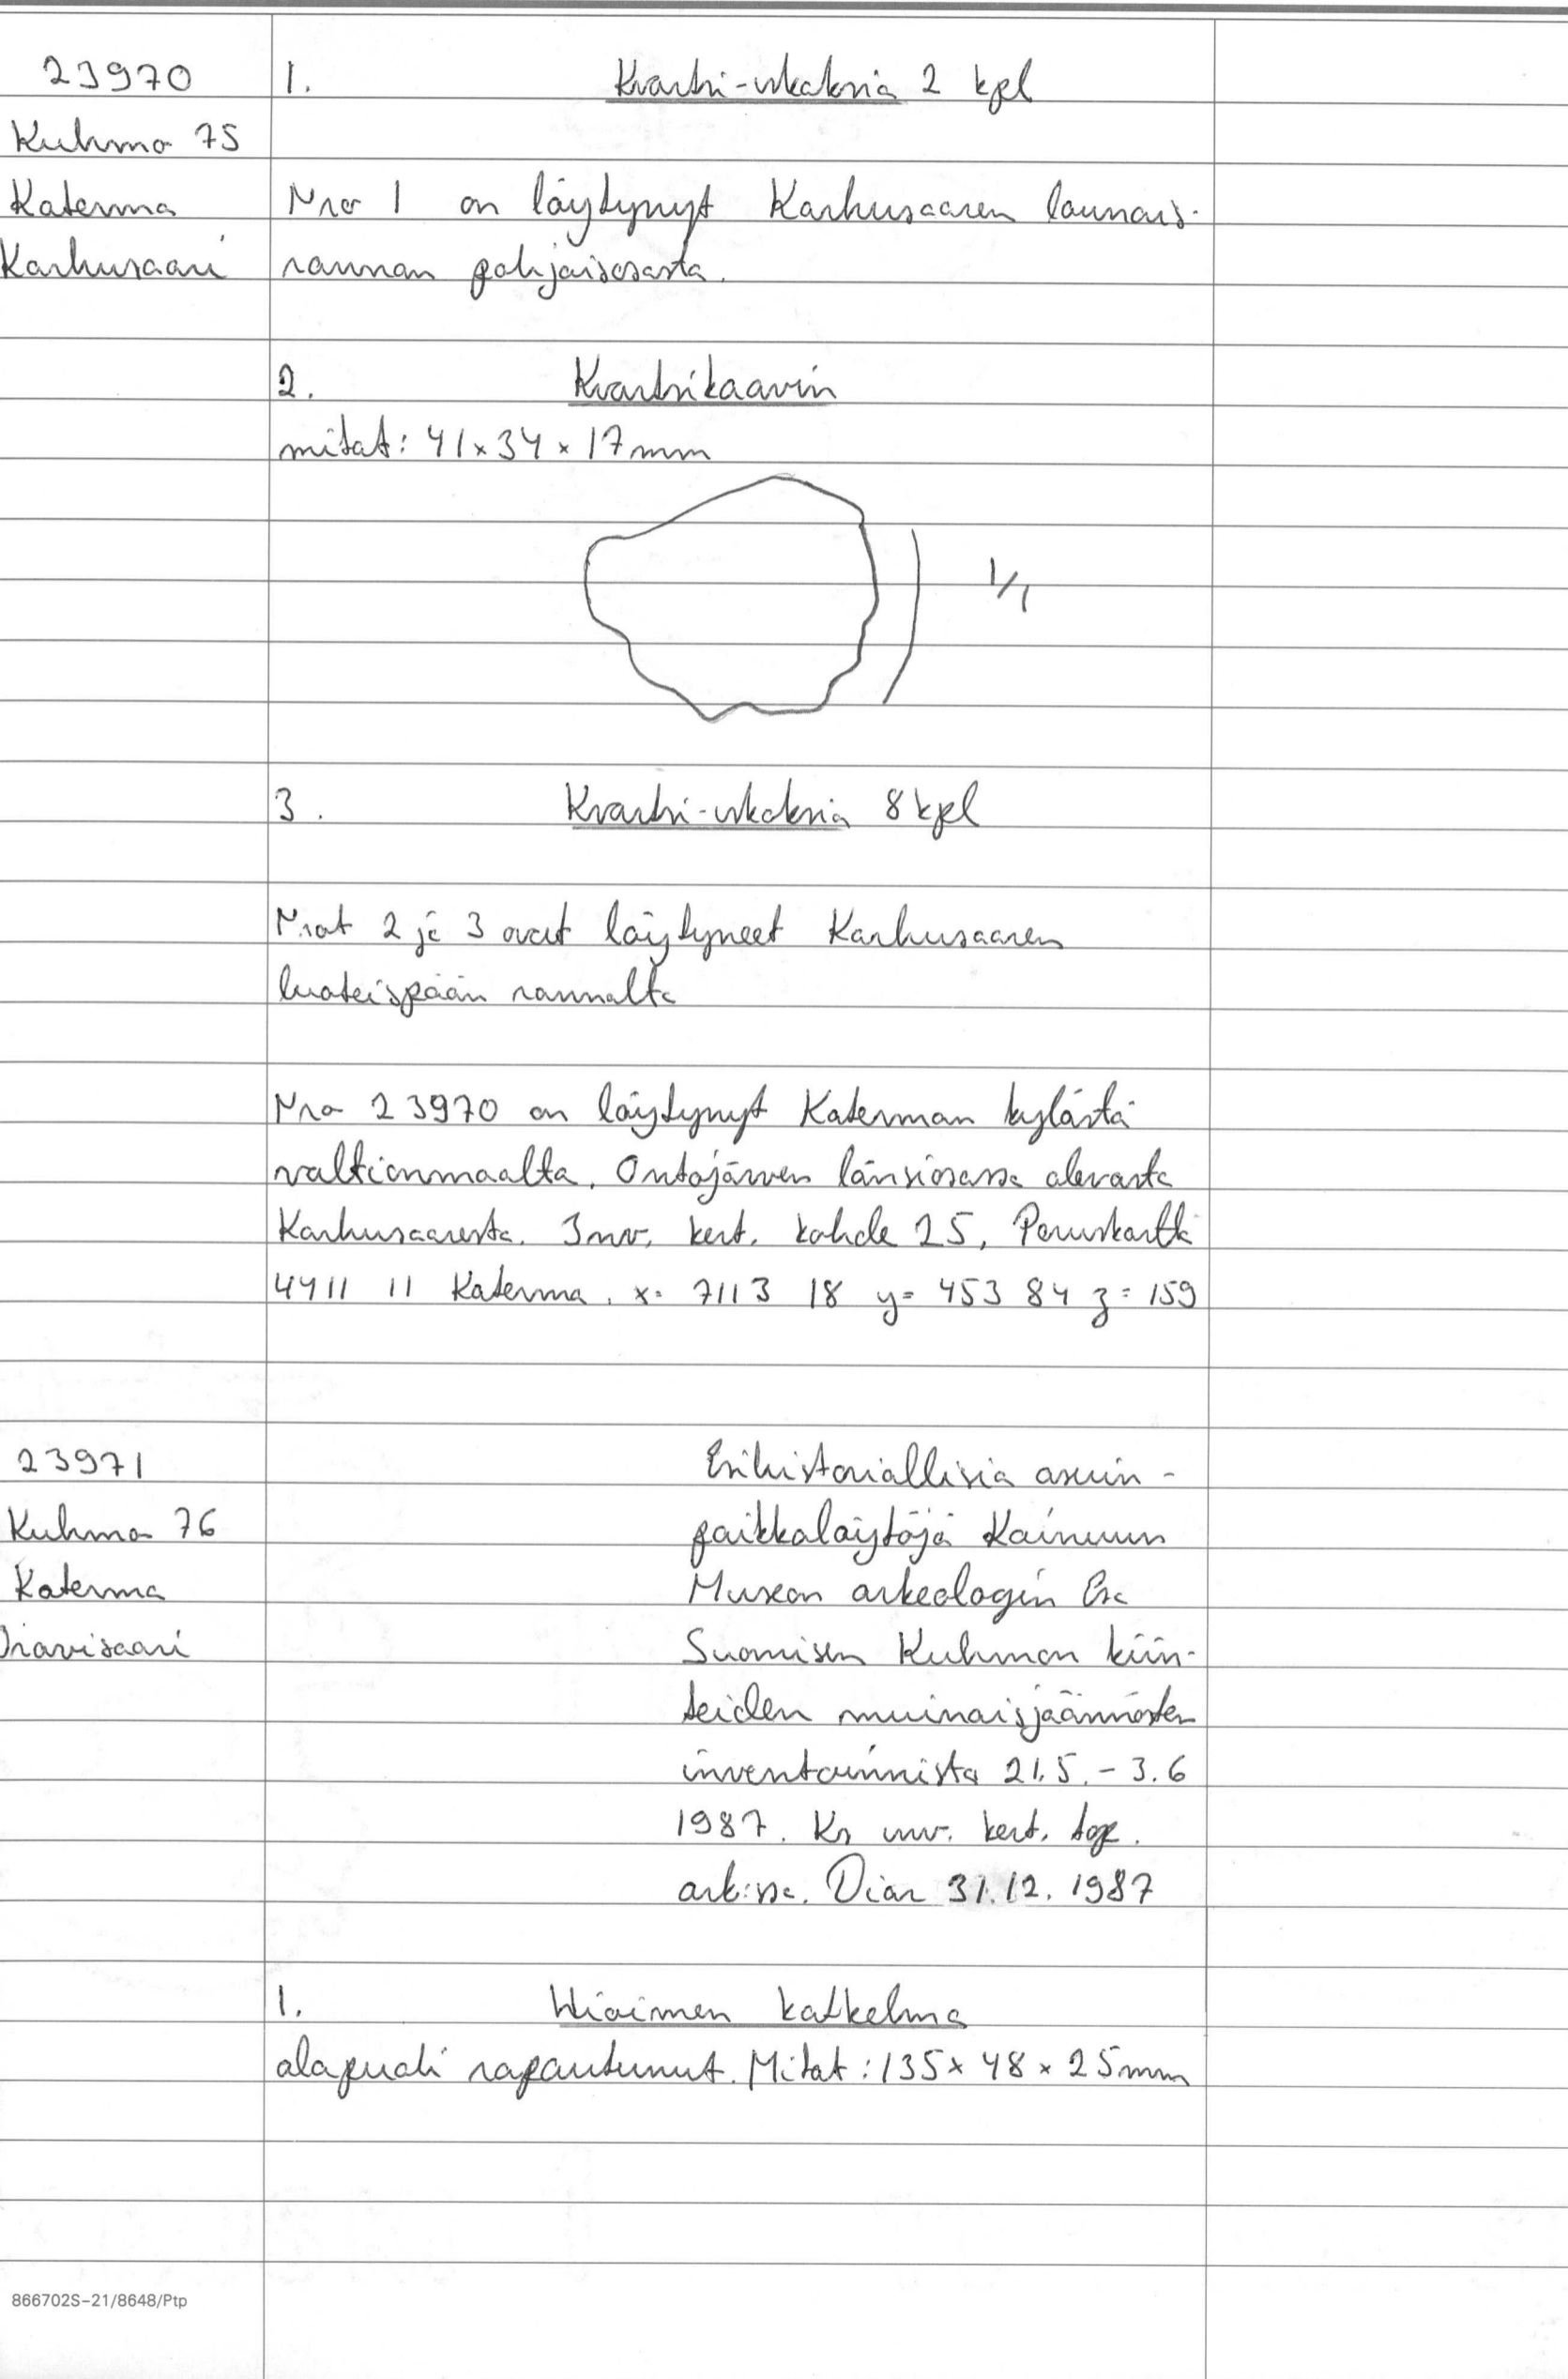 23970 1. Kvartsi-iskoksia 2 kpl
Kuhmo 75
Katerma Nro 1 on löytynyt Karhusaaren lounais-
Karhusaari rannan pohjoisosasta.
2. Kvartsikaavin
mitat: 41x34x17mm
1/1
3. Kvartsi-iskoksia 8 kpl
Nrot 2 ja 3 ovat löytyneet Karhusaaren
luoteispään rannalta
Nro 23970 on löytynyt Katerman kylästä
valtionmaalta, Ontojärven länsiosassa olevasta
Karhusaaresta. Inv. kert. kohde 25, Peruskartta
4411 11 Katerma. x= 7113 18 y= 453 84 z= 159
23971 Esihistoriallisia asuin-
Kuhmo 76 paikkalöytöjä Kainuun
Katerma Museon arkeologin Esa
Suomisen Kuhmon kiin-
teiden muinaisjäännösten
inventoinnista 21.5.-3.6
1987. Ks inv. kert. top.
ark:ssa. Diar 31.12.1987
1. Hioimen katkelma
alapuoli rapautunut. Mitat: 135x48x25mm
866702S-21/8648/Ptp